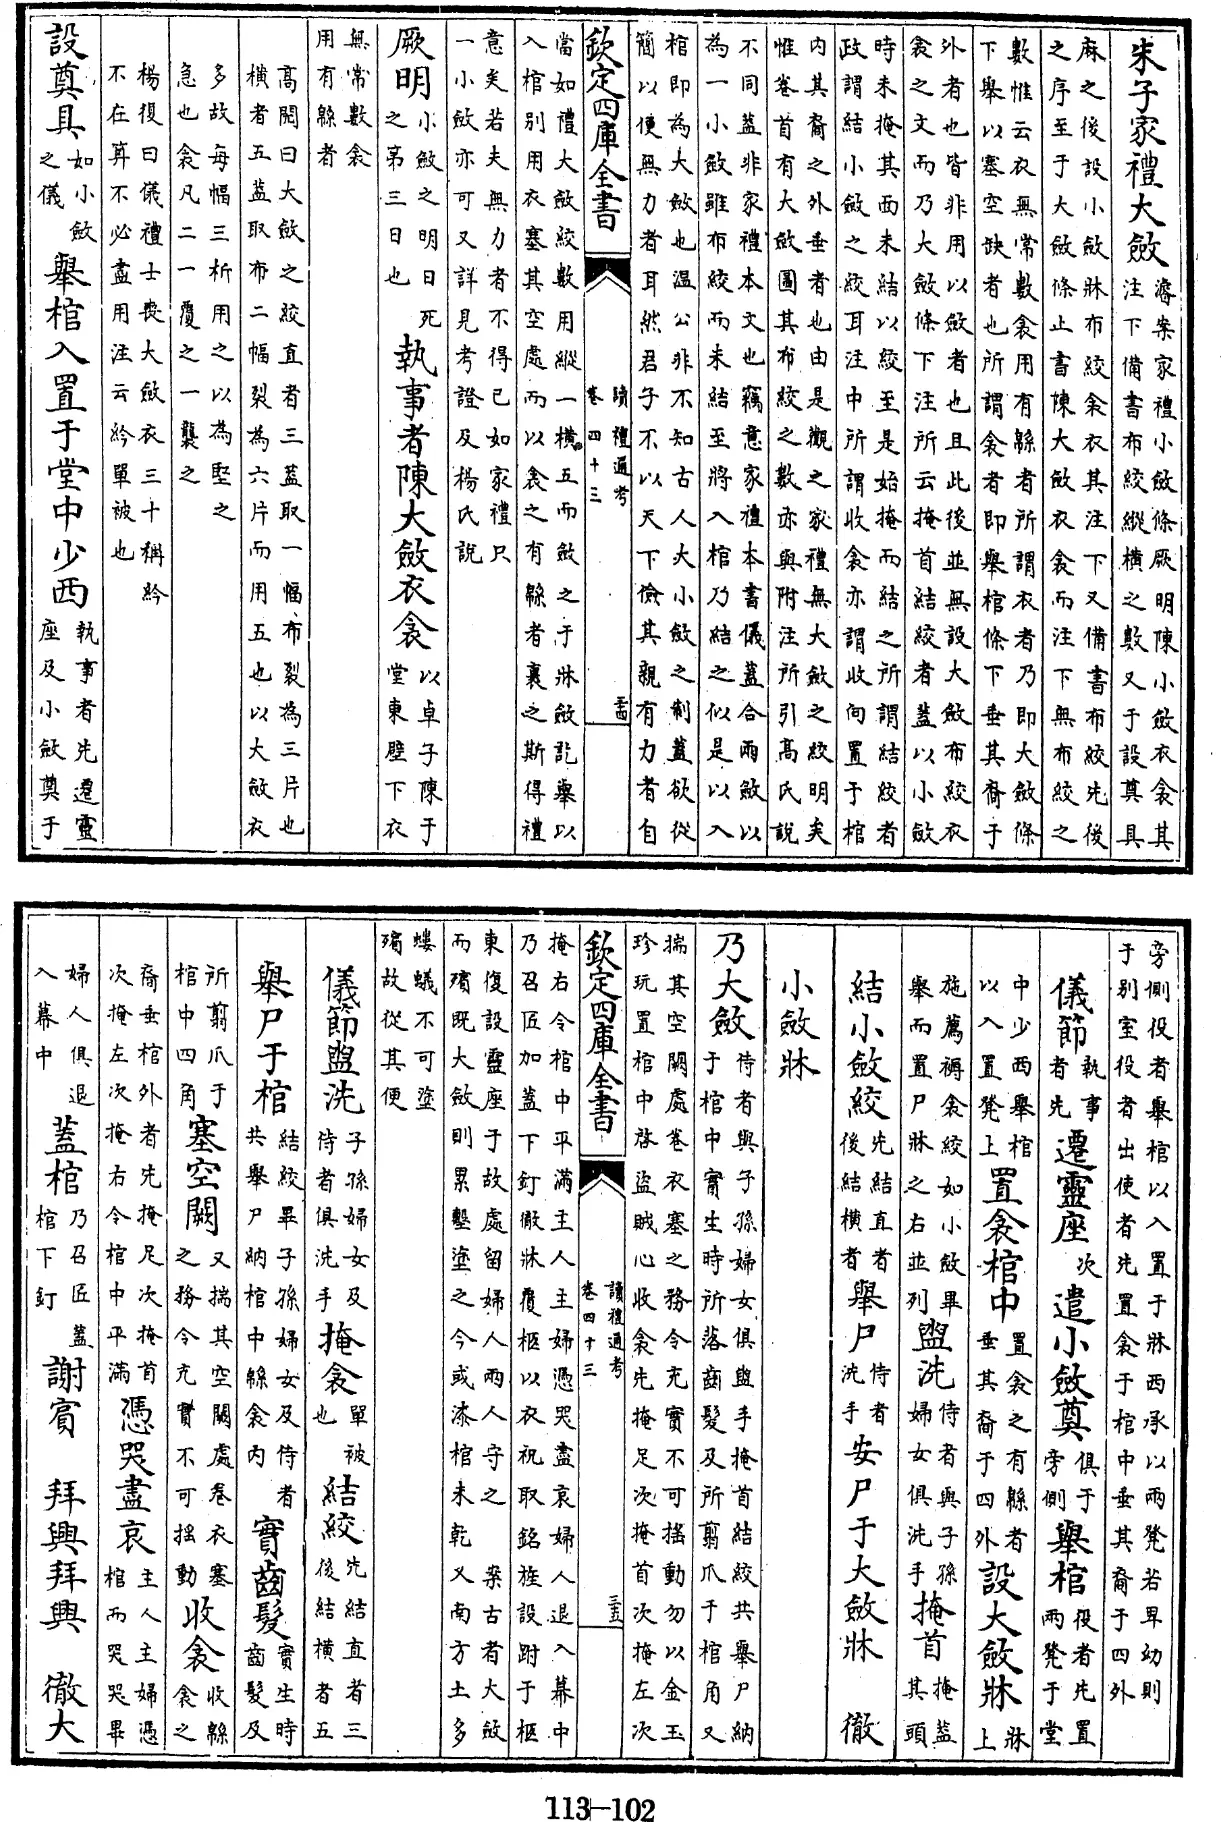 朱子家禮大斂濬案家禮小斂條厥明陳小斂衣衾其
注下備書布絞縱橫之數又于設奠具
麻之後設小斂牀布絞衾衣其注下又備書布絞先後
之序至于大斂條止書陳大斂衣衾而注下無布絞之
數惟云衣無常數衾用有緜者所謂衣者乃即大斂條
下舉以塞空缺者也所謂衾者即舉棺條下垂其裔于
外者也皆非用以斂者也且此後並無設大斂布絞衣
衾之文而乃大斂條下注所云掩首結絞者蓋以小斂
時未掩其面未結以絞至是始掩而結之所謂結絞者
政謂結小斂之絞耳注中所謂收衾亦謂收向置于棺
內其裔之外垂者也由是觀之家禮無大斂之絞明矣
惟卷首有大斂圖其布絞之數亦與附注所引高氏說
不同蓋非家禮本文也竊意家禮本書儀蓋合兩斂以
為一小斂雖布絞而未結至將入棺乃結之似是以入
棺即為大斂也溫公非不知古人大小斂之制蓋欲從
簡以便無力者耳然君子不以天下儉其親有力者自
欽定四庫全書
讀禮通考
卷四十三
三四
當如禮大斂絞數用縱一橫五而斂之于牀斂訖舉以
入棺別用衣塞其空處而以衾之有緜者裹之斯得禮
意矣若夫無力者不得已如家禮只
一小斂亦可又詳見考證及楊氏說
厥明小斂之明日死之第三日也執事者陳大斂衣衾以卓子陳于堂東壁下衣
無常數衾
用有緜者
高閌曰大斂之絞直者三蓋取一幅布裂為三片也
橫者五蓋取布二幅裂為六片而用五也以大斂衣
多故每幅三析用之以為堅之
急也衾凡二一覆之一襲之
楊復曰儀禮士喪大斂衣三十稱紟
不在算不必盡用注云紟單被也
設奠具如小斂之儀舉棺入置于堂中少西執事者先遷靈座及小斂奠于
旁側役者舉棺以入置于牀西承以兩凳若卑幼則
于別室役者出使者先置衾于棺中垂其裔于四外
儀節執事者先遷靈座次遣小斂奠俱于旁側舉棺役者先置兩凳于堂
中少西舉棺以入置凳上置衾棺中置衾之有緜者垂其裔于四外設大斂牀牀上
施薦褥衾絞如小斂畢舉而置尸牀之右並列盥洗侍者與子孫婦女俱洗手掩首掩蓋其頭
結小斂絞先結直者後結橫者舉尸侍者洗手安尸于大斂牀 徹
小斂牀
乃大斂侍者與子孫婦女俱盥手掩首結絞共舉尸納于棺中實生時所落齒髮及所翦爪于棺角又
揣其空闕處卷衣塞之務令充實不可搖動勿以金玉
珍玩置棺中啓盜賊心收衾先掩足次掩首次掩左次
欽定四庫全書
讀禮通考
卷四十三
三五
掩右令棺中平滿主人主婦憑哭盡哀婦人退入幕中
乃召匠加蓋下釘徹牀覆柩以衣祝取銘旌設跗于柩
東復設靈座于故處留婦人兩人守之 案古者大斂
而殯既大斂則累墼塗之今或漆棺未乾又南方土多
螻蟻不可塗
殯故從其便
儀節盥洗子孫婦女及侍者俱洗手掩衾單被也結絞先結直者三後結橫者五
舉尸于棺結絞畢子孫婦女及侍者共舉尸納棺中緜衾內實齒髮實生時齒髮及
所翦爪于棺中四角塞空闕又揣其空闕處卷衣塞之務令充實不可搖動收衾收緜衾之
裔垂棺外者先掩足次掩首次掩左次掩右令棺中平滿憑哭盡哀主人主婦憑棺而哭哭畢
婦人俱退入幕中蓋棺乃召匠蓋棺下釘謝賓 拜興拜興 徹大
113—102